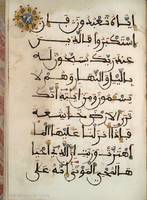 إياه تعبدون فإن
استكبروا فالذين
عند ربك يسبحون
له باليل والنهار وهم لا
يسئمون ومن ءايته أنك
ترى الأرض خشعة
فإذا أنزلنا عليها الماء
اهتزت وربت إن الذي أحيا
ها لمحي الموتى إنه على